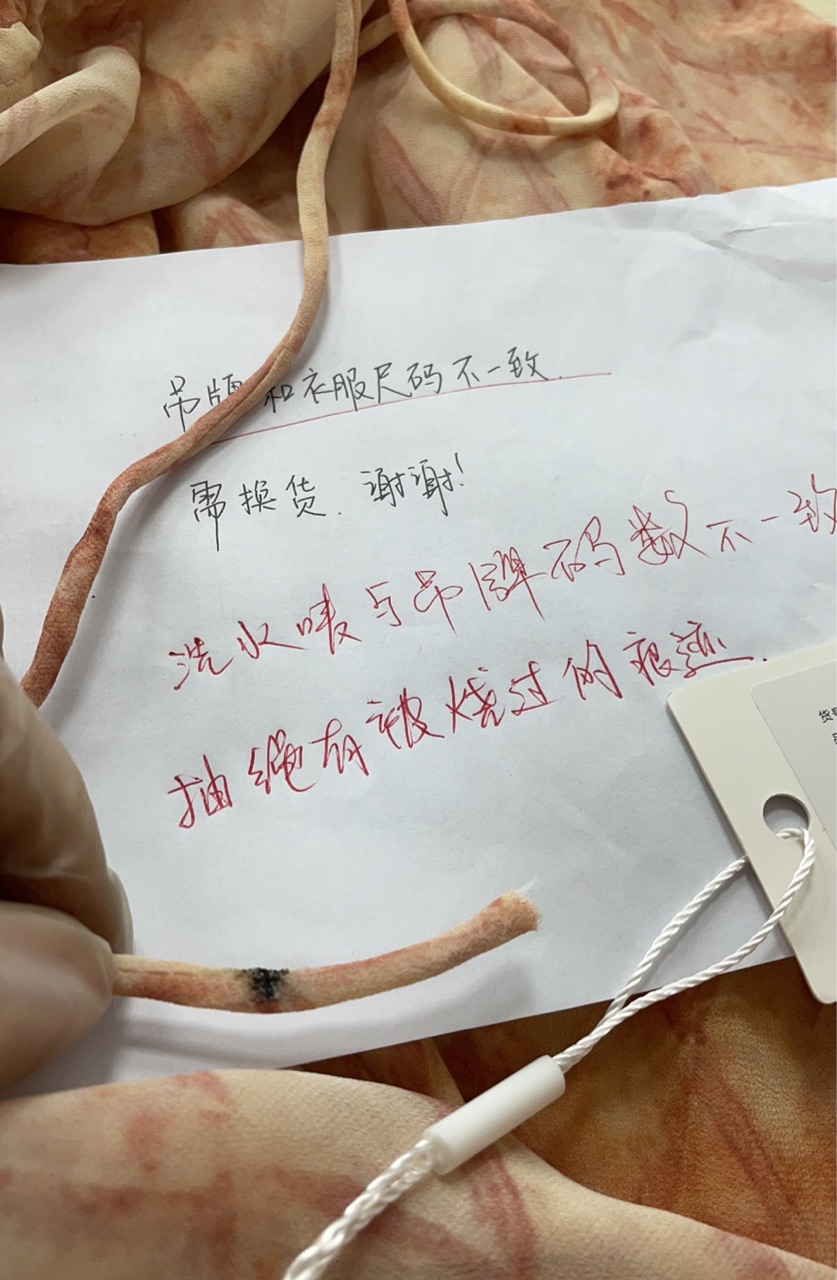 吊牌和衣服尺码不一致.
需换货.谢谢!
洗水唛与吊牌码数不一致
抽绳有被烧过的痕迹.
货号